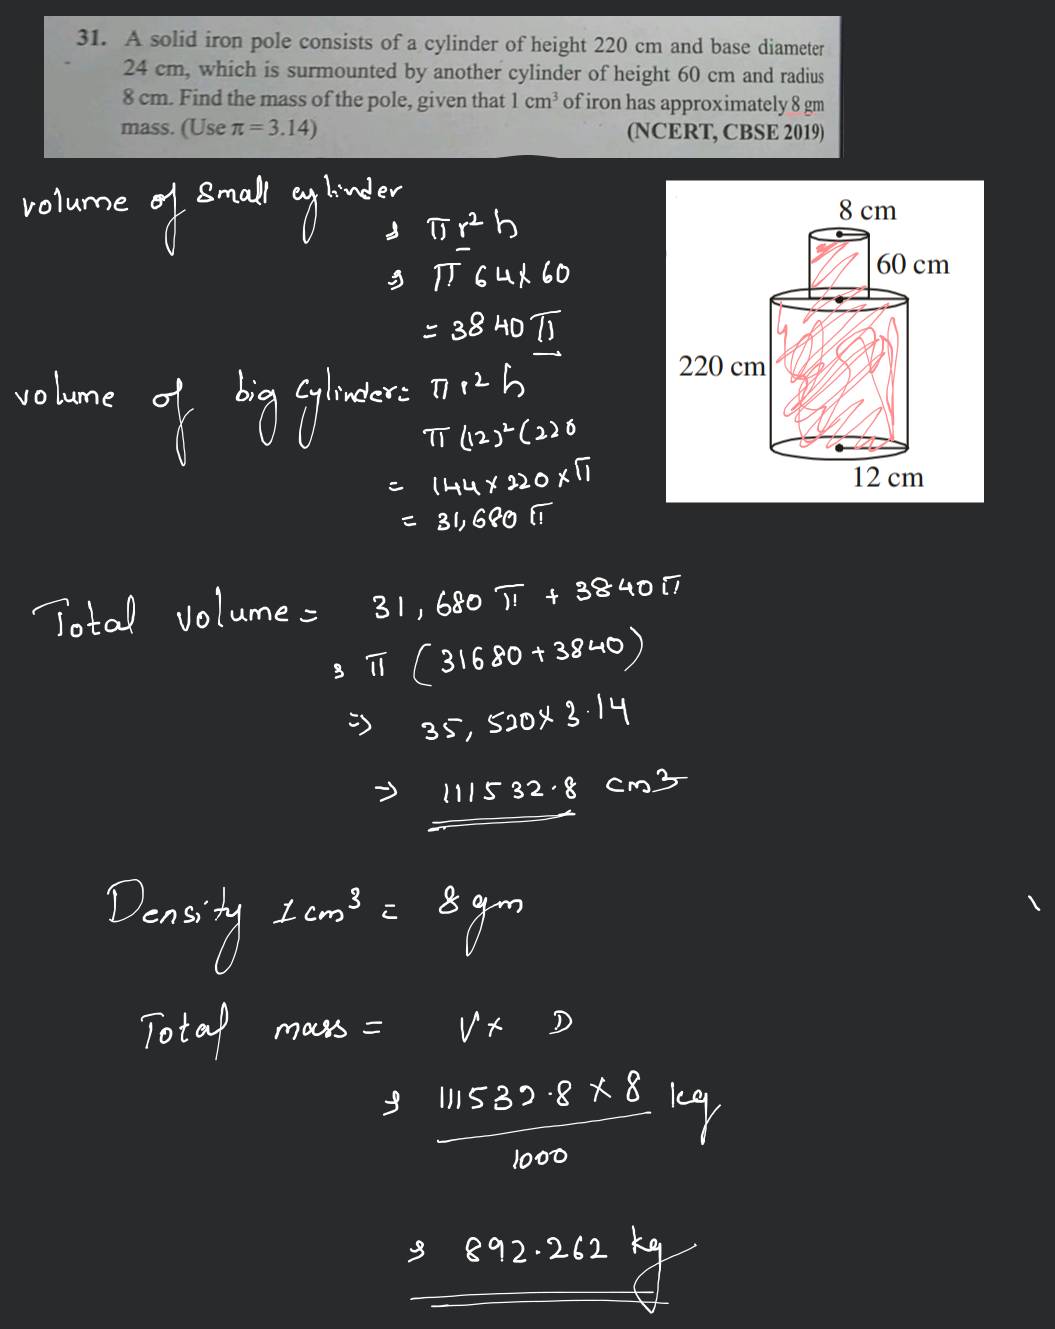 31. A solid iron pole consists of a cylinder of height 220 cm and base diameter
24 cm, which is surmounted by another cylinder of height 60 cm and radius
8 cm. Find the mass of the pole, given that 1 cm³ of iron has approximately 8 gm
mass. (Use π = 3.14) (NCERT, CBSE 2019)
volume of small cylinder
⇒ π r² h
⇒ π 64 × 60
= 3840 π
8 cm
60 cm
220 cm
12 cm
volume of big cylinder = π r² h
π (12)² (220
= 144 × 220 × π
= 31,680 π
Total volume = 31,680 π + 3840 π
⇒ π (31680 + 3840)
⇒ 35,520 × 3.14
⇒ 111532.8 cm3
Density 1 cm³ = 8 gm
Total mass = V × D
⇒ 111532.8 × 8 kg
1000
⇒ 892.262 kg